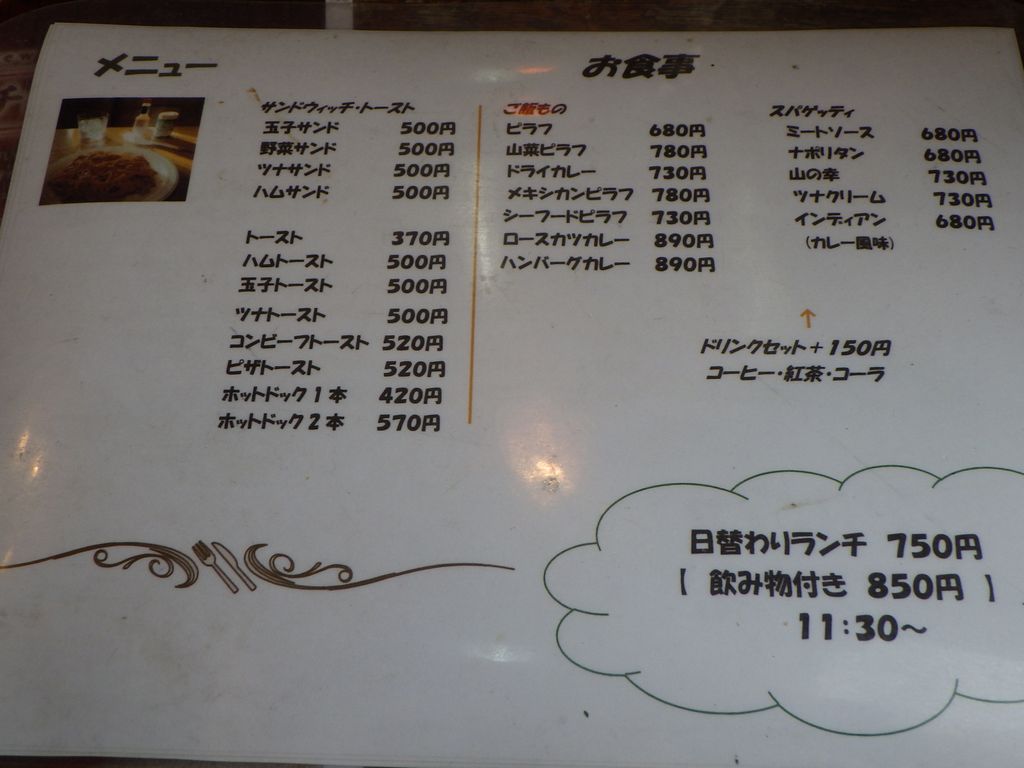 メニュー
お食事
サンドウィッチ・トースト
玉子サンド 500円
野菜サンド 500円
ツナサンド 500円
ハムサンド 500円
トースト 370円
ハムトースト 500円
玉子トースト 500円
ツナトースト 500円
コンビーフトースト 520円
ピザトースト 520円
ホットドック1本 420円
ホットドック2本 570円
ご飯もの
ピラフ 680円
山菜ピラフ 780円
ドライカレー 730円
メキシカンピラフ 780円
シーフードピラフ 730円
ロースカツカレー 890円
ハンバーグカレー 890円
スパゲッティ
ミートソース 680円
ナポリタン 680円
山の幸 730円
ツナクリーム 730円
インディアン 680円
(カレー風味)
↑
ドリンクセット+150円
コーヒー・紅茶・コーラ
日替わりランチ 750円
【 飲み物付き 850円 】
11:30～